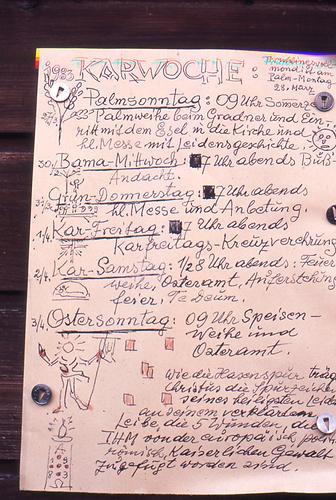 1983 KARWOCHE :
Frühlingsvoll
mond ist am
Palm-Montag
28. März
Palmsonntag: 09 Uhr Sommerz
Palmweihe beim Gradner und Ein-
ritt mit dem Esel in die Kirche und
hl. Messe mit Leidensgeschichte.
30/ Bama-Mittwoch: 7 Uhr abends Buß-
Andacht.
Grün-Donnerstag: 7 Uhr abends
hl. Messe und Anbetung.
1/4 Kar-Freitag: 7 Uhr abends
Karfreitags-Kreuzverehrung
2/4 Kar-Samstag: 1/28 Uhr abends: Feuer
weihe, Osteramt, Auferstehung
feier, Te deum.
3/4 Ostersonntag: 09 Uhr Speisen-
Weihe und
Osteramt.
wie die Hasenspur träg
Christus die Spürzeichen
seines heiligsten Leide
an seinem verklärten
Leibe, die 5 Wunden, die
IHM von der europäisch
römisch, Kaiserlichen Gewalt
zugefügt worden sind.